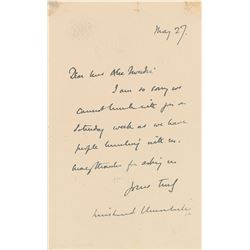 May 27.
Dear Mrs
I am so sorry we
cannot lunch with you on
Saturday week as we have
people lunching with us.
Many thanks for asking us
Yours truly